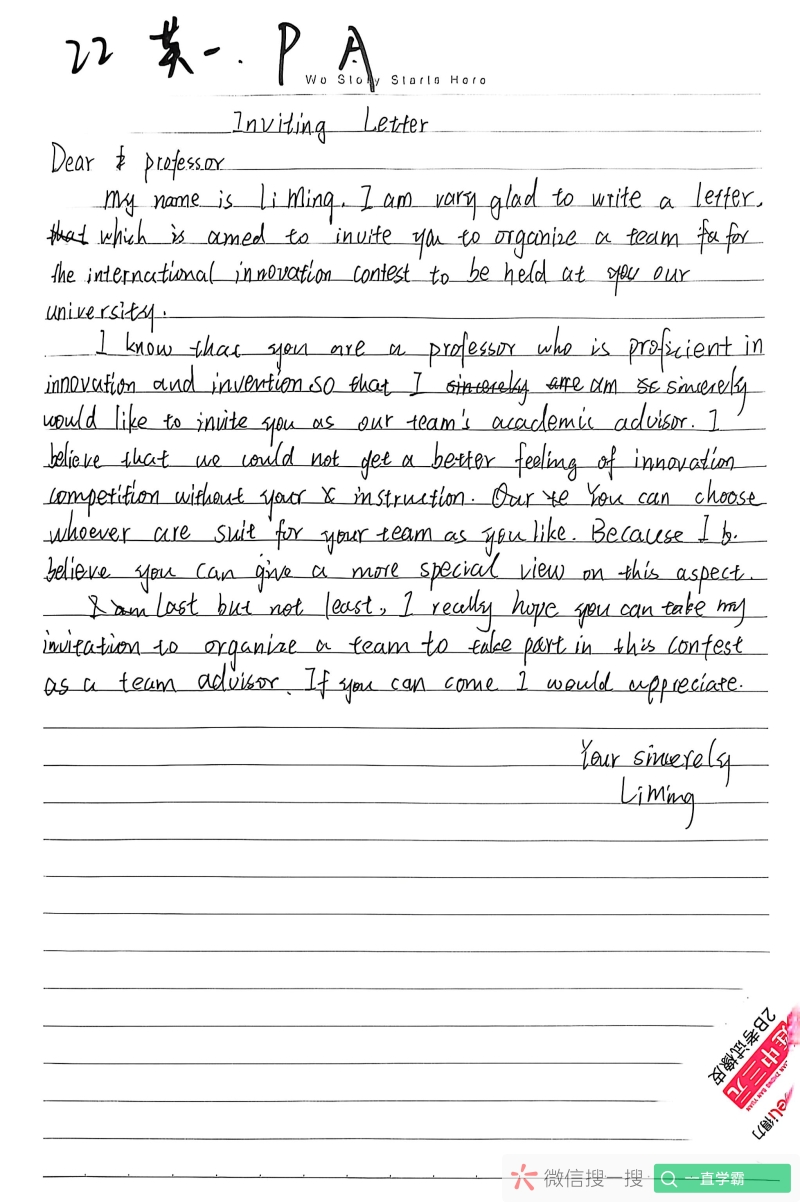 22 英一. P A
We Story Starts Here
Inviting Letter
Dear professor
my name is Li Ming. I am vary glad to write a letter.
that which is amed to invite you to organize a team fa for
the international innovation contest to be held at you our
university.
I know that you are a professor who is proficient in
innovation and invention so that I sincerely are am sc sincerely
would like to invite you as our team's academic advisor. I
believe that we could not get a better feeling of innovation
competition without your instruction. Our te You can choose
whoever are suit for your team as you like. Because I b.
believe you can give a more special view on this aspect.
I am Last but not least, I really hope you can take my
invitation to organize a team to take part in this contest
as a team advisor. If you can come I would appreciate.
Your sincerely
LiMing
2B考试橡皮
连中三元
LIAN ZHONG SAN YUAN
deli得力
微信搜一搜
一直学霸